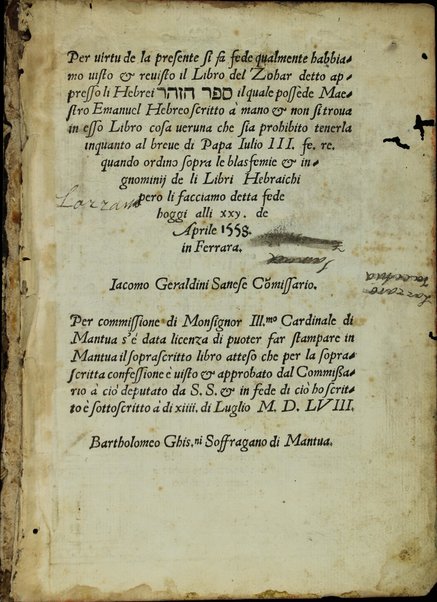 Per uirtu de la presente si fà fede qualmente habbia-
mo uisto & reuisto il Libro del Zohar detto ap-
presso li Hebrei ספר הזהר il quale possede Mae-
stro Emanuel Hebreo scritto à mano & non si troua
in esso Libro cosa ueruna che sia prohibito tenerla
inquanto al breue di Papa Iulio III. fe. re.
quando ordino sopra le blasfemie & in-
gnominij de li Libri Hebraichi
però li facciamo detta fede
Lazzaro
hoggi alli xxv. de
Aprile 1558.
in Ferrara.
Iacomo Geraldini Sanese Cõmissario.
Per commissione di Monsignor Ill.mo Cardinale di
Mantua s'é data licenza di puoter far stampare in
Mantua il soprascritto libro atteso che per la sopra-
scritta confessione è uisto & approbato dal Commißa-
rio à ciò deputato da S. S. & in fede di ciò ho scrit-
to è sottoscritto à di xiiii. di Luglio M. D. LVIII.
Bartholomeo Ghis.ni Soffragano di Mantua.